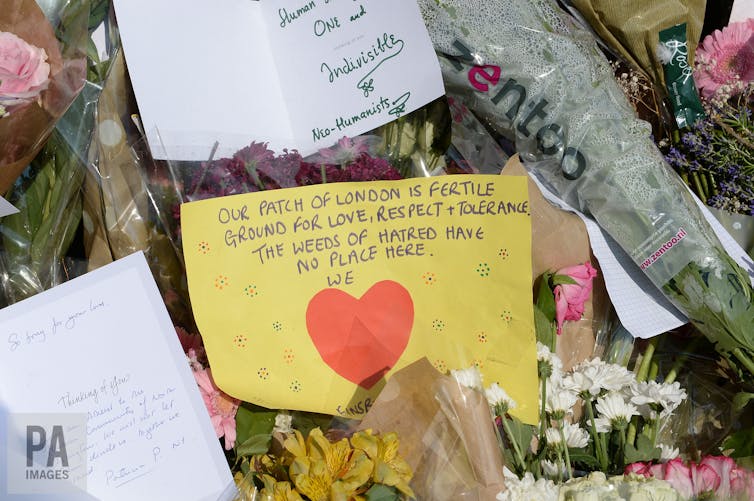 Human
ONE and
Indivisible
Neo-Humanists
zentoo
www.zentoo.nl
OUR PATCH OF LONDON IS FERTILE
GROUND FOR LOVE, RESPECT + TOLERANCE.
THE WEEDS OF HATRED HAVE
NO PLACE HERE.
WE
So sorry for your loss.
Thinking of You
community of
we will not let
together we
PA
IMAGES